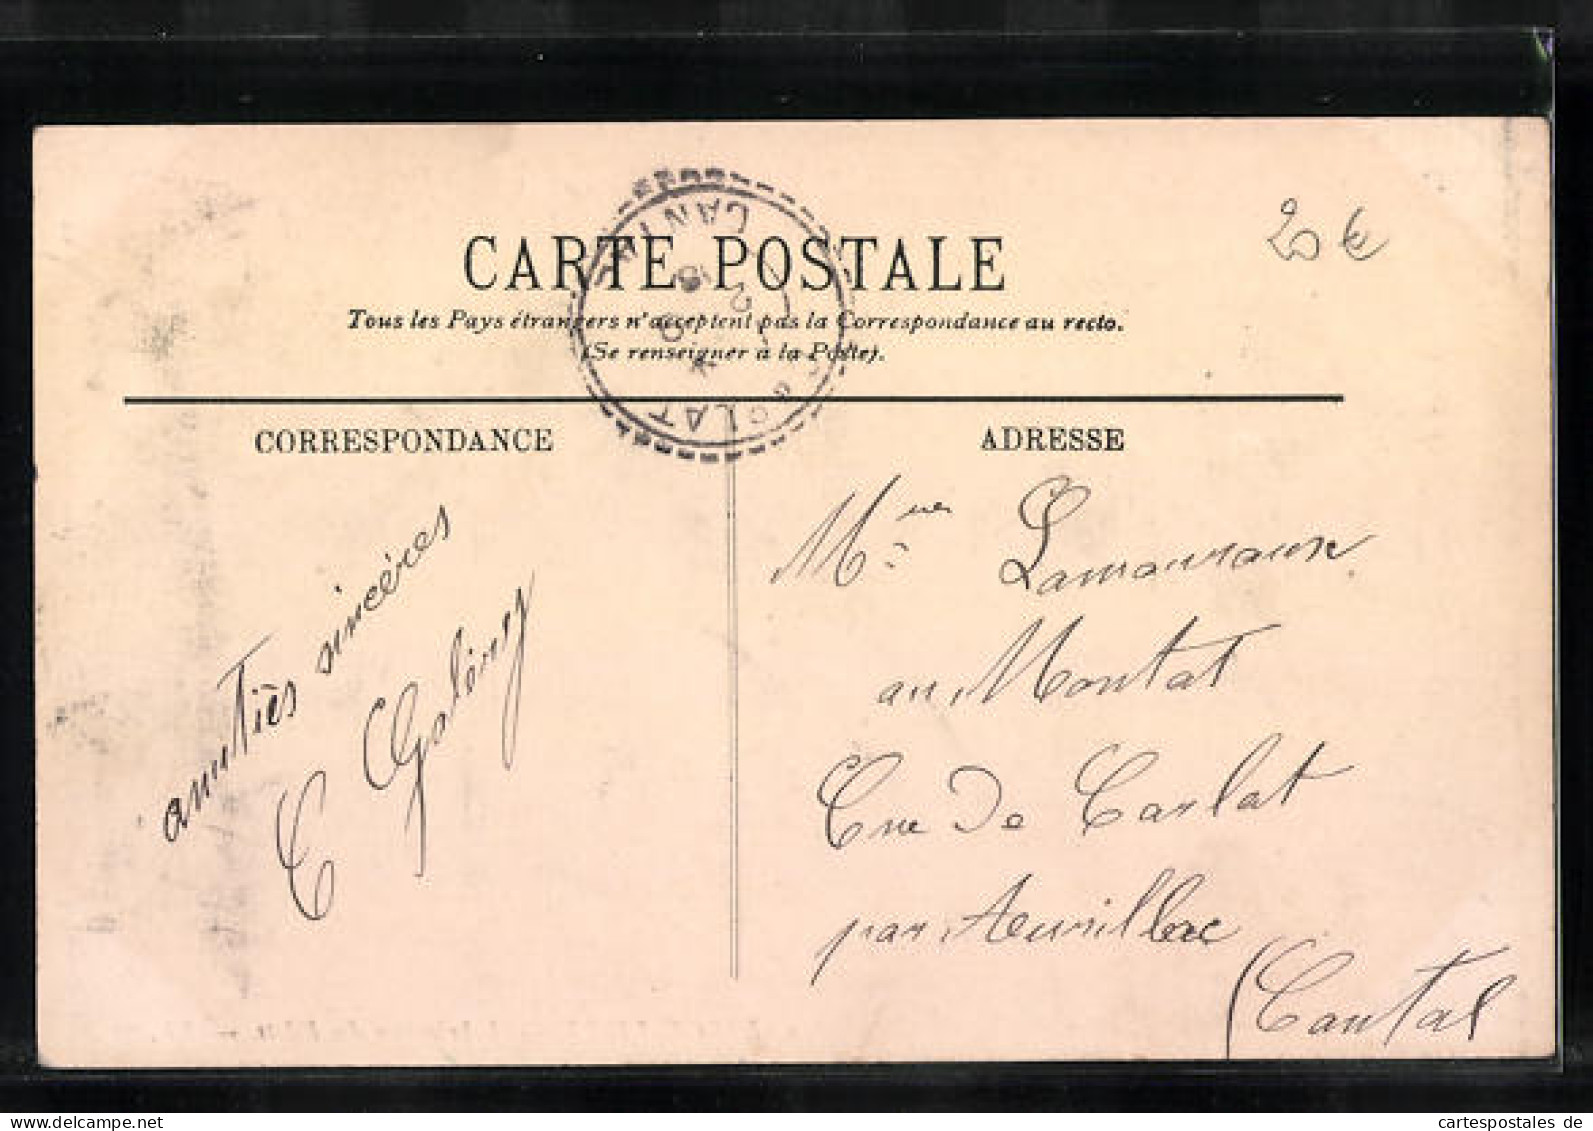 CARTE POSTALE
Tous les Pays étrangers n'acceptent pas la Correspondance au recto.
(Se renseigner à la Poste).
20 €
CANTAL
CORRESPONDANCE
ADRESSE
amitiés sincères
Lamouroux
au Montat
Cne de Carlat
par Aurillac
(Cantal
cartespostales de